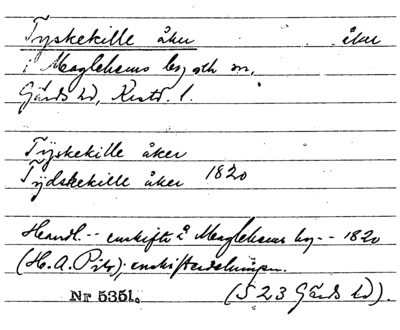 Tyskekille åker åker
i Maglehems by och sn,
Gärds hd, Krstd. l.
Tyskekille åker
Tydskekille åker 1820
Handl. -- enskifte å Maglehems by -- 1820
(H. A. Pihr); enskiftesdelningen.
Nr 5351. (S 23 Gärds hd).